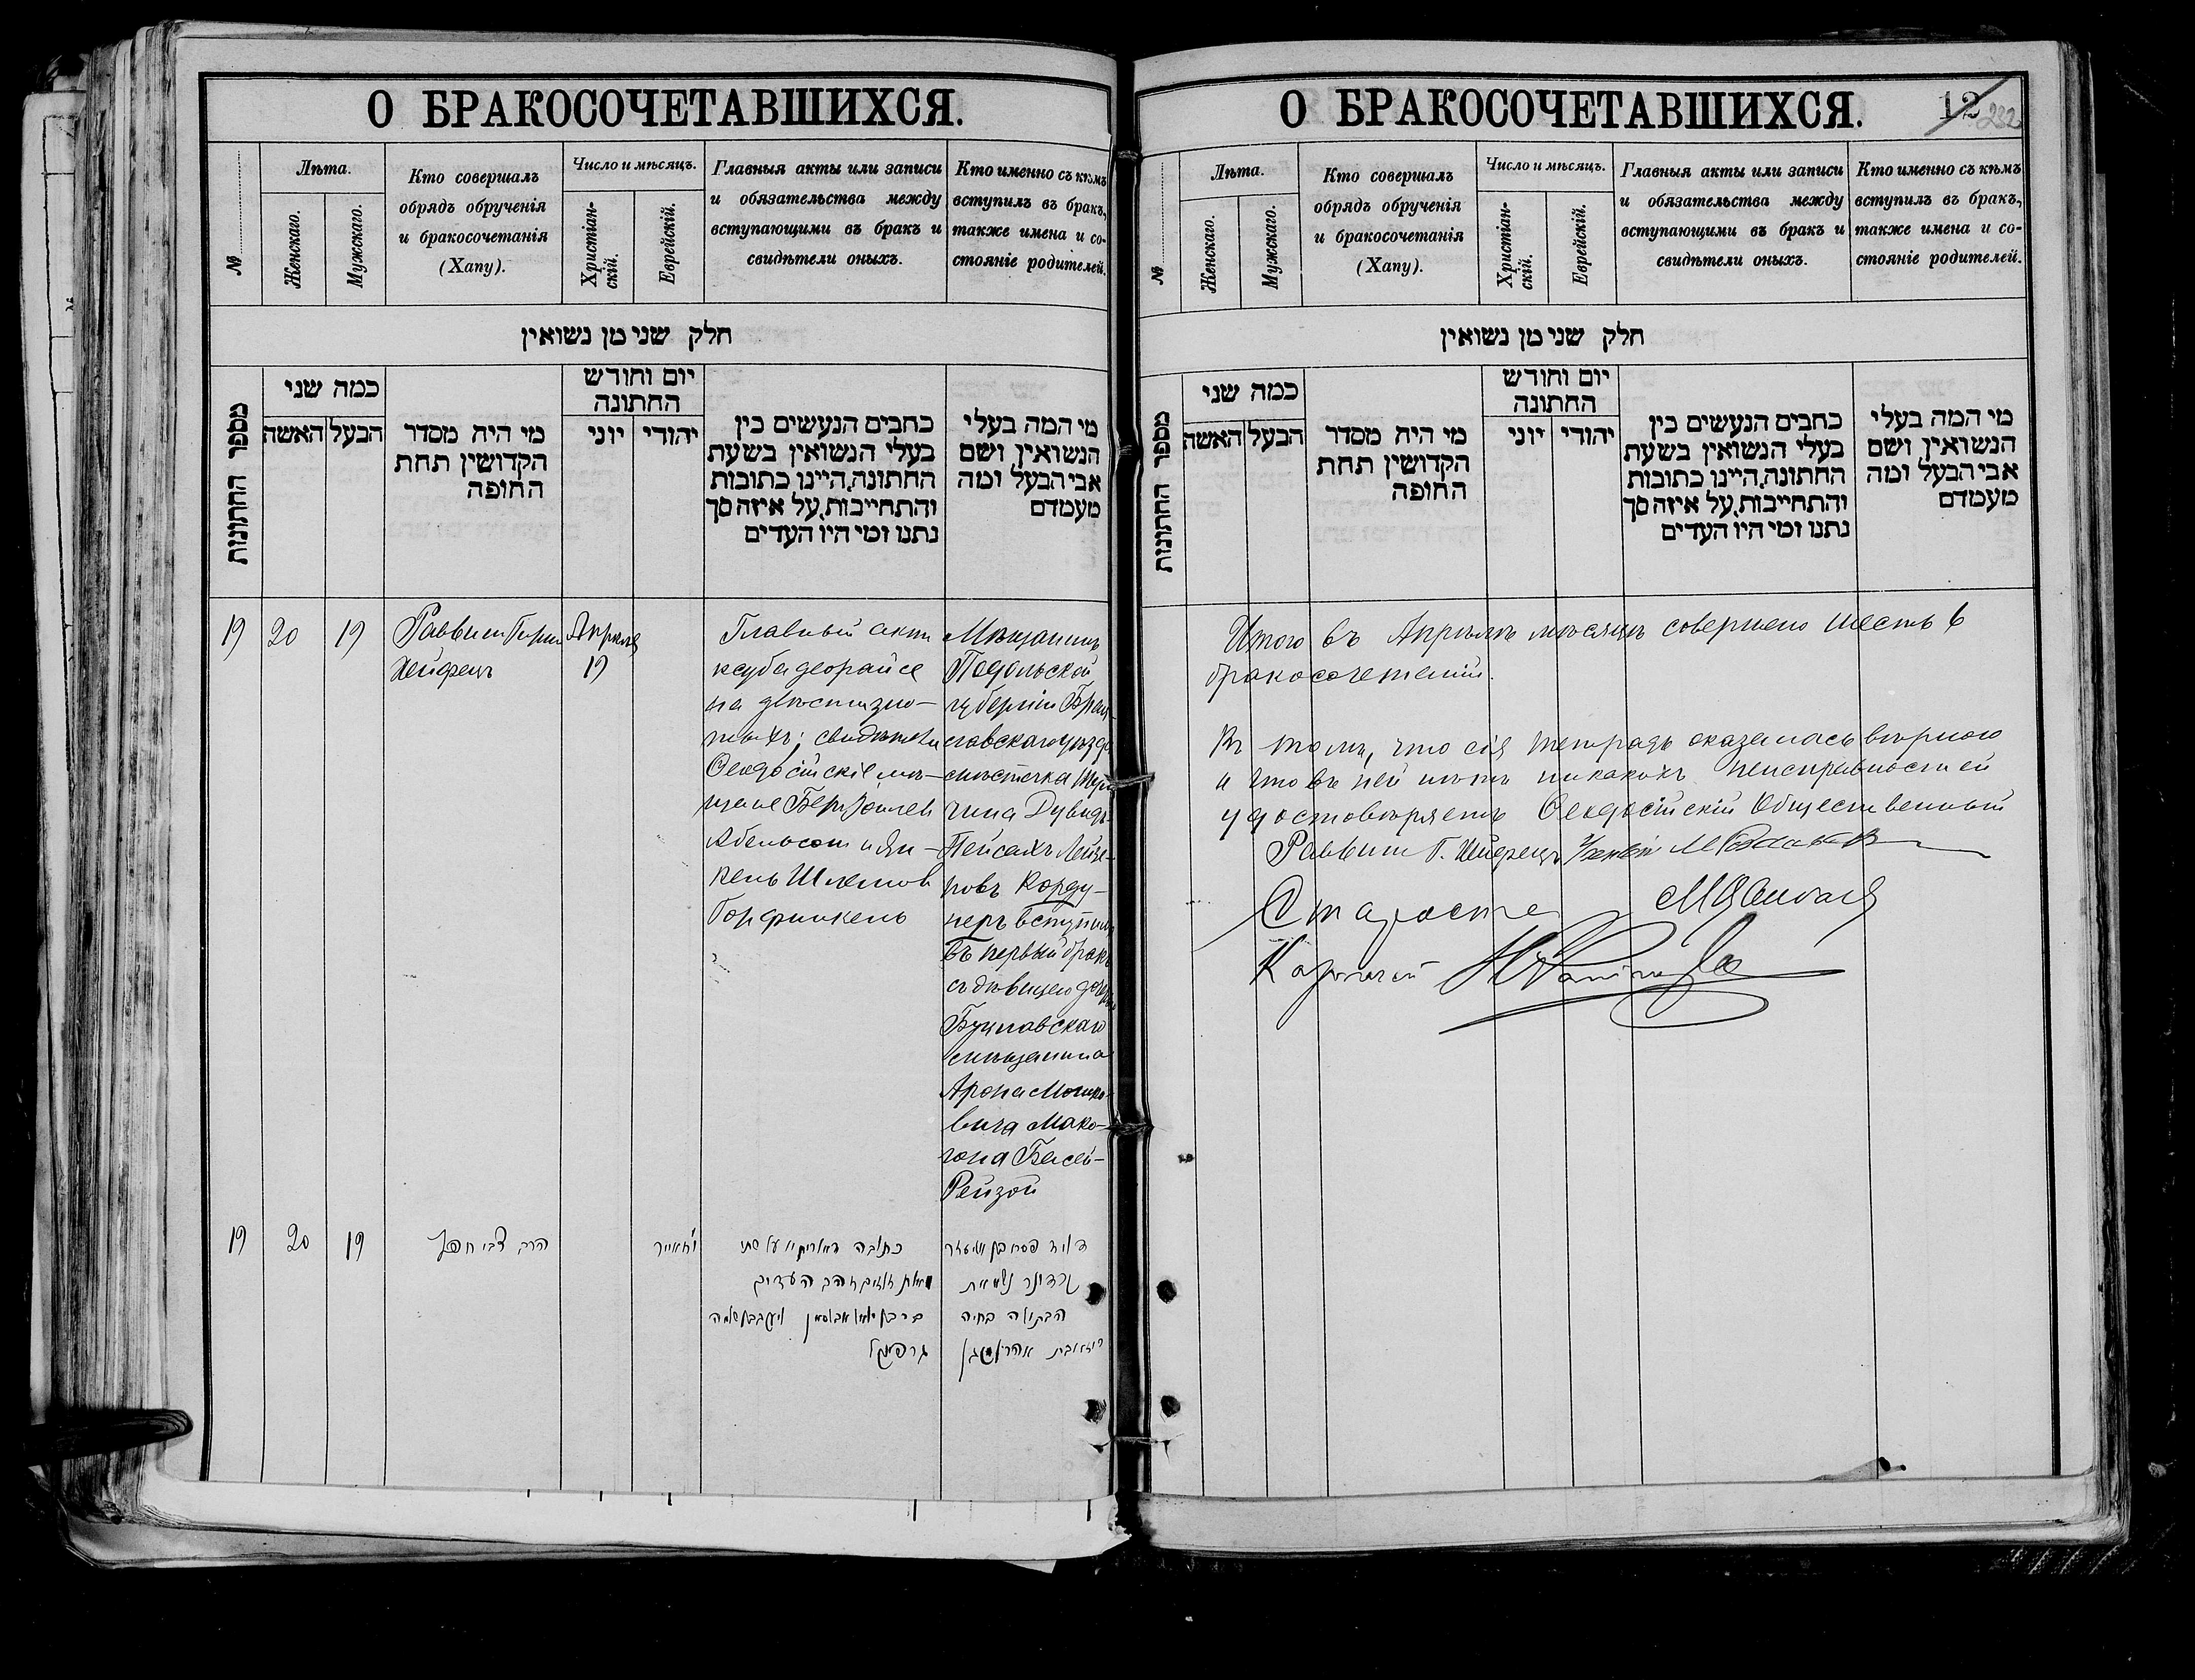 О БРАКОСОЧЕТАВШИХСЯ.
№
Лѣта.
Женскаго.
Мужскаго.
Кто совершалъ
обрядъ обрученія
и бракосочетанія
(Хапу).
Число и мѣсяцъ.
Христіан-
скій.
Еврейскій.
Главныя акты или записи
и обязательства между
вступающими въ бракъ и
свидѣтели оныхъ.
Кто именно съ кѣмъ
вступилъ въ бракъ,
также имена и со-
стояніе родителей.
חלק שני מן נשואין
מספר החתונות
כמה שני
האשה
הבעל
מי היה מסדר
הקדושין תחת
החופה
יום וחודש
החתונה
יוני
יהודי
כתבים הנעשים בין
בעלי הנשואין בשעת
החתונה, היינו כתובות
והתחייבות, על איזה סך
נתנו ומי היו העדים
מי המה בעלי
הנשואין ושם
אבי הבעל ומה
מעמדם
19
20
19
Раввин Гирш
Хейфецъ
Апрѣля
19
Главный акт
ксуба деорайсе
на двѣсти зло-
тыхъ; свидѣтели
Ѳеодосійскіе мѣ-
щане Беръ Іоилев
Абельсон и Ян-
кель Шлемов
Горфинкель
Мѣщанинъ
Подольской
губерніи Брац-
лавскаго уѣзда
мѣстечка
чина Дувидъ-
Пейсахъ Лейзе-
ровъ Корду-
неръ вступилъ
въ первый бракъ
съ дѣвицею дочерью
Буцлавскаго
мѣщанина
Арона Мошко-
вича Мако-
гона Басей-
Рейзой
19
20
19
הרב צבי חפץ
ז אייר
כתובה דאוריתא על שתי
מאות זהובים והעדים
בר בן יואל אבלסאן ויעקב בן שלמה
גרפינקל
דוד פסח בן אליעזר
קרדונר נשא את
הבתולה בתיה
רוזא בת אהרן
О БРАКОСОЧЕТАВШИХСЯ.
12
232
№
Лѣта.
Женскаго.
Мужскаго.
Кто совершалъ
обрядъ обрученія
и бракосочетанія
(Хапу).
Число и мѣсяцъ.
Христіан-
скій.
Еврейскій.
Главныя акты или записи
и обязательства между
вступающими въ бракъ и
свидѣтели оныхъ.
Кто именно съ кѣмъ
вступилъ въ бракъ,
также имена и со-
стояніе родителей.
חלק שני מן נשואין
מספר החתונות
כמה שני
האשה
הבעל
מי היה מסדר
הקדושין תחת
החופה
יום וחודש
החתונה
יוני
יהודי
כתבים הנעשים בין
בעלי הנשואין בשעת
החתונה, היינו כתובות
והתחייבות, על איזה סך
נתנו ומי היו העדים
מי המה בעלי
הנשואין ושם
אבי הבעל ומה
מעמדם
Итого въ Апрѣлѣ мѣсяцѣ совершено шесть 6
бракосочетаній.
Въ томъ, что сія тетрадь оказалась вѣрною
и что въ ней нѣтъ никакихъ неисправностей
удостовѣряетъ Ѳеодосійскій Общественный
Раввин Г. Хейфецъ
Староста
Казначей